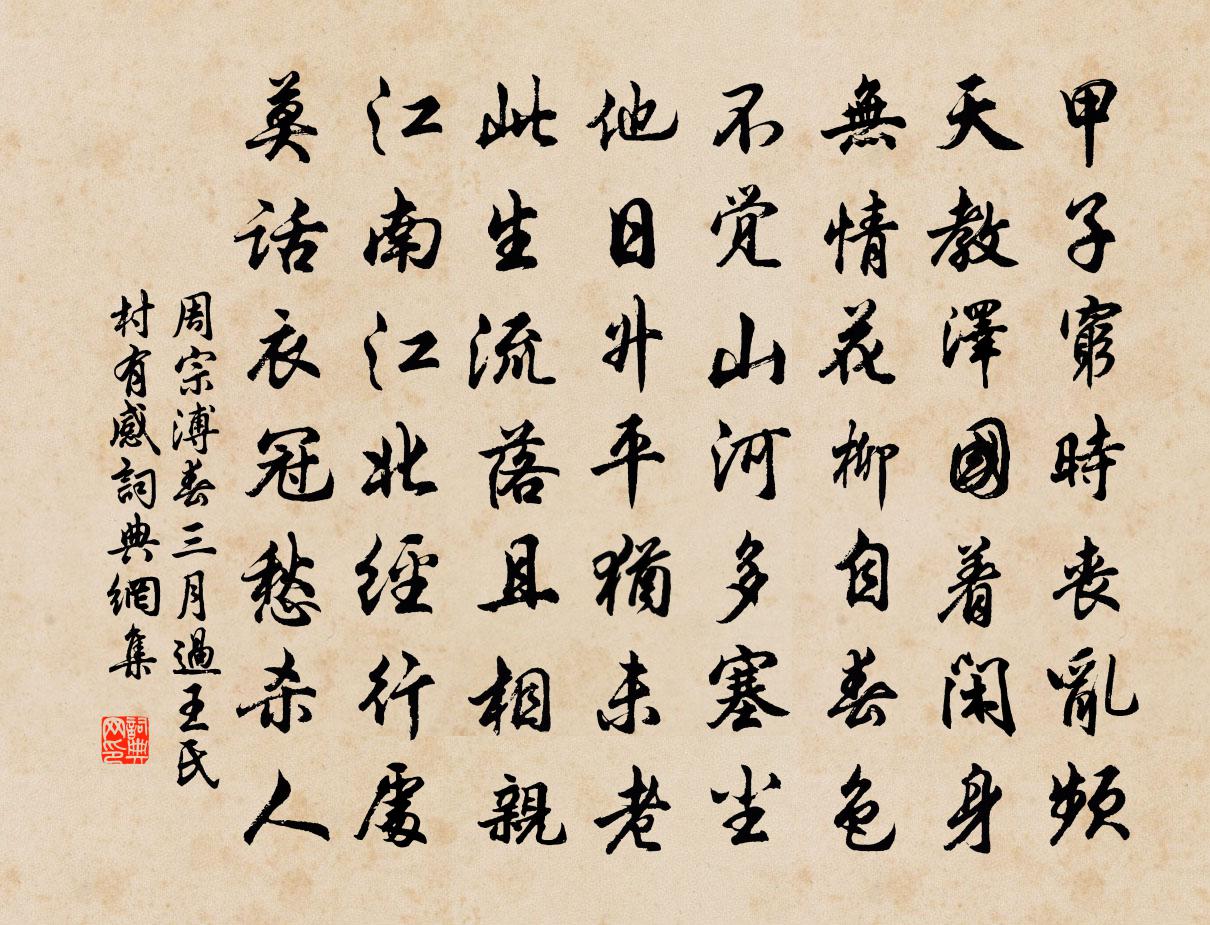 甲子窮時喪亂頻
天教澤國着閑身
無情花柳自春色
不覚山河多塞尘
他日升平猶未老
此生流落且相親
江南江北經行處
莫話衣冠愁杀人
周宗溥春三月過王民
村有感詞典網集
詞典
网印